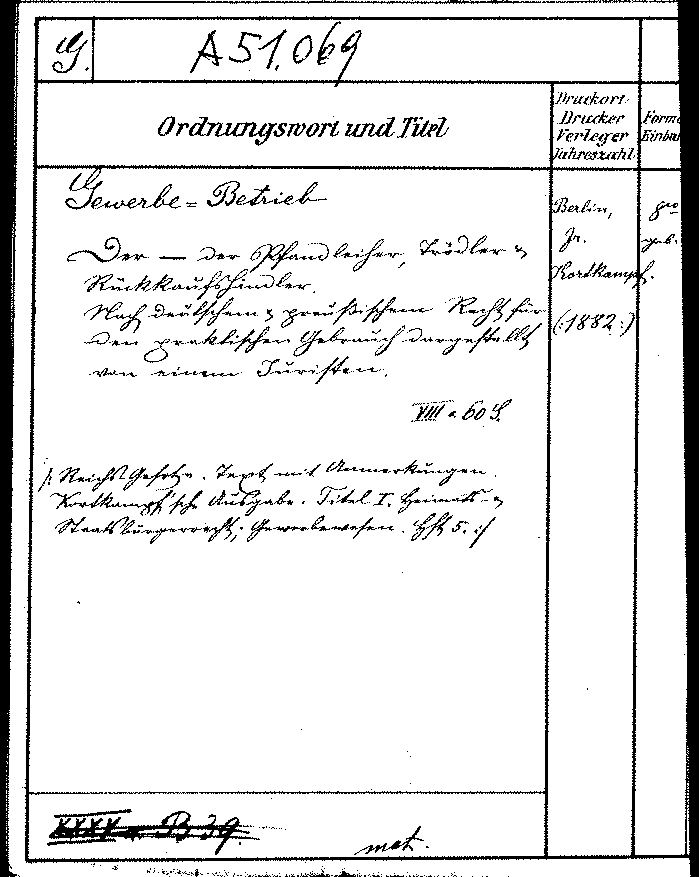 G.
A 51.069
Ordnungswort und Titel
Druckort
Drucker
Verleger
Jahreszahl
Gewerbe = Betrieb
Der — der Pfandleiher, Trödler &
Rückkaufshändler.
Nach deutschem & preußischem Recht für
den praktischen Gebrauch dargestellt
von einem Juristen.
VIII & 60 S.
/: Reichs Gesetze. Text mit Anmerkungen.
Kortkampf'sche Ausgabe. Titel I. Heimats- &
Staatsbürgerrecht; Gewerbewesen. Hft 5. :/
Berlin,
Fr.
Kortkampf.
(:1882:)
8vo
geb.
B 39.
mat.